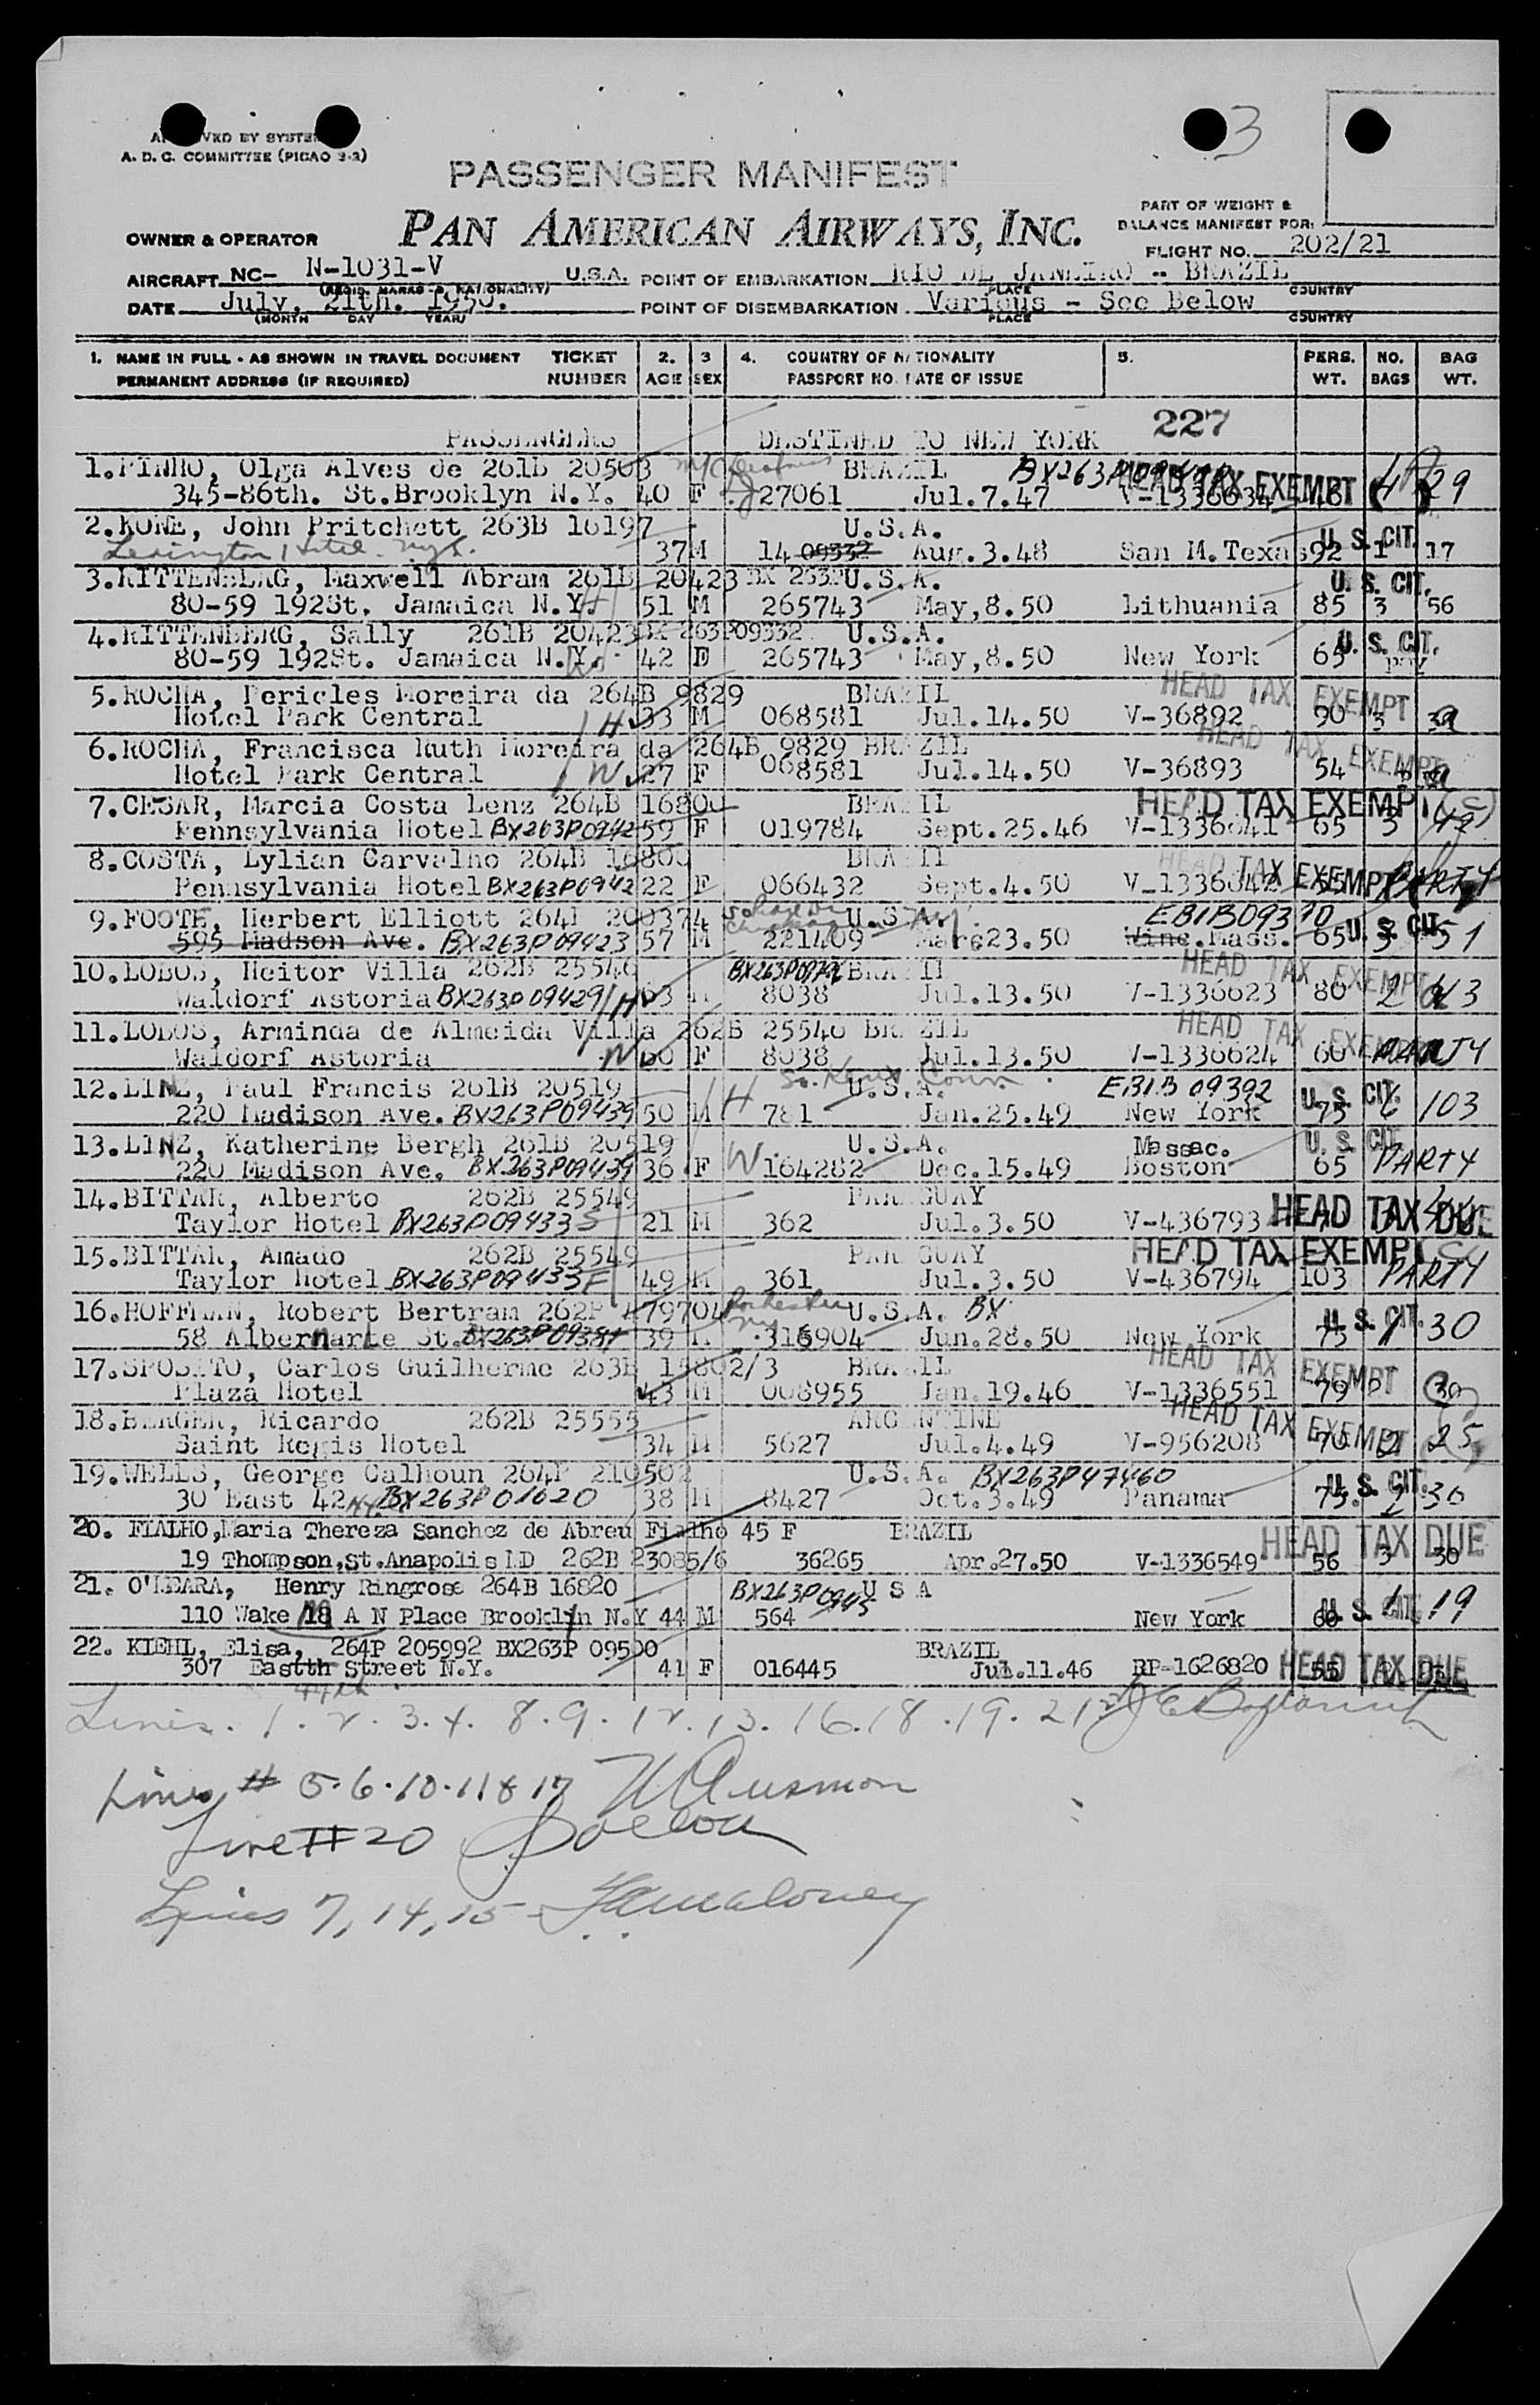 3
A. D. C. COMMITTEE (PICAO 2-2)
PASSENGER MANIFEST
PART OF WEIGHT &
BALANCE MANIFEST FOR:
OWNER & OPERATOR PAN AMERICAN AIRWAYS, INC.
FLIGHT NO. 202/21
AIRCRAFT NC- N-1031-V U.S.A. POINT OF EMBARKATION RIO DE JANEIRO - BRAZIL
(REGIS. MARKS & NATIONALITY) PLACE COUNTRY
DATE July, 21th. 1950. POINT OF DISEMBARKATION Various - See Below
(MONTH DAY YEAR) PLACE COUNTRY
1. NAME IN FULL - AS SHOWN IN TRAVEL DOCUMENT TICKET 2. 3 4. COUNTRY OF NATIONALITY 5. PERS. NO. BAG
PERMANENT ADDRESS (IF REQUIRED) NUMBER AGE SEX PASSPORT NO. DATE OF ISSUE WT. BAGS WT.
227
PASSENGERS DESTINED TO NEW YORK
1. PINHO, Olga Alves de 261B 20503 BRAZIL
345-86th. St.Brooklyn N.Y. 40 F 27061 Jul.7.47 V-1336634 HEAD TAX EXEMPT 29
2. KONE, John Pritchett 263B 16197 U.S.A. U. S. CIT.
Lexington Hotel. nyc. 37 M 14 09332 Aug.3.48 San M.Texas 92 1 17
3. RITTENBERG, Maxwell Abram 261B 20423 BX 263P U.S.A. U. S. CIT.
80-59 192St. Jamaica N.Y. 51 M 265743 May,8.50 Lithuania 85 3 56
4. RITTENBERG, Sally 261B 20423 BX 263P09332 U.S.A. U. S. CIT.
80-59 192St. Jamaica N.Y. 42 F 265743 May,8.50 New York 65
5. ROCHA, Pericles Moreira da 264B 9829 BRAZIL HEAD TAX EXEMPT
Hotel Park Central H 33 M 068581 Jul.14.50 V-36892 90 3
6. ROCHA, Francisca Ruth Moreira da 264B 9829 BRAZIL HEAD TAX EXEMPT
Hotel Park Central W 27 F 068581 Jul.14.50 V-36893 54
7. CESAR, Marcia Costa Lenz 264B 16800 BRAZIL HEAD TAX EXEMPT
Pennsylvania Hotel BX263P0942 59 F 019784 Sept.25.46 V-1336641 65 3
8. COSTA, Lylian Carvalho 264B 16800 BRAZIL HEAD TAX EXEMPT
Pennsylvania Hotel BX263P0942 22 F 066432 Sept.4.50 V-1336642 PARTY
9. FOOTE, Herbert Elliott 264P 200374 U.S.A. EB1B09370 U. S. CIT.
595 Madson Ave. BX263P09423 57 M 221409 Marc23.50 Winc.Mass. 65 3 51
10. LOBOS, Heitor Villa 262B 25546 BRAZIL HEAD TAX EXEMPT
Waldorf Astoria BX263P09429 H 63 M 8038 Jul.13.50 V-1336623 80 2 43
11. LOBOS, Arminda de Almeida Villa 262B 25546 BRAZIL HEAD TAX EXEMPT
Waldorf Astoria W 60 F 8038 Jul.13.50 V-1336624 60 PARTY
12. LINZ, Paul Francis 261B 20519 H U.S.A. EB1B 09392 U. S. CIT.
220 Madison Ave. BX263P09439 50 M 781 Jan.25.49 New York 75 6 103
13. LINZ, Katherine Bergh 261B 20519 W U.S.A. Massac. U. S. CIT.
220 Madison Ave. BX263P09439 36 F 164282 Dec.15.49 Boston 65 PARTY
14. BITTAR, Alberto 262B 25549 PARAGUAY
Taylor Hotel BX263P09433 S 21 M 362 Jul.3.50 V-436793 HEAD TAX DUE
15. BITTAR, Amado 262B 25549 PARAGUAY HEAD TAX EXEMPT
Taylor Hotel BX263P09433 F 49 M 361 Jul.3.50 V-436794 103 PARTY
16. HOFFMAN, Robert Bertram 262P Rochester ny U.S.A. BX U. S. CIT.
58 Albermarle St. BX263P09384 39 M 316904 Jun.28.50 New York 75 1 30
17. SPOSITO, Carlos Guilherme 263B 15802/3 BRAZIL HEAD TAX EXEMPT
Plaza Hotel 43 M 008955 Jan.19.46 V-1336551 79 30
18. BERGER, Ricardo 262B 25555 ARGENTINE HEAD TAX EXEMPT
Saint Regis Hotel 34 M 5627 Jul.4.49 V-956208 70 2 25
19. WELLS, George Calhoun 264P 210502 U.S.A. BX263P47460 U. S. CIT.
30 East 42 N.Y. BX263P01620 38 M 8427 Oct.3.49 Panama 75. 2 30
20. FIALHO, Maria Thereza Sanchez de Abreu Fialho 45 F BRAZIL HEAD TAX DUE
19 Thompson,St.Anapolis MD 262B 23085/6 36265 Apr.27.50 V-1336549 56 3 30
21. O'LEARA, Henry Ringrose 264B 16820 BX263P0945 U S A
110 Wake A N Place Brooklyn N.Y 44 M 564 New York 60 U. S. CIT. 1 19
22. KIEHL, Elisa, 264P 205992 BX263P 09500 BRAZIL
307 Eastth Street N.Y. 41 F 016445 Jul.11.46 RP-1626820 55 HEAD TAX DUE
44th
Lines. 1. 2. 3. 4. 8. 9. 12. 13. 16. 18. 19. 21
Lines # 5. 6. 10. 11 & 17
Line # 20
Lines 7, 14, 15 - Maloney